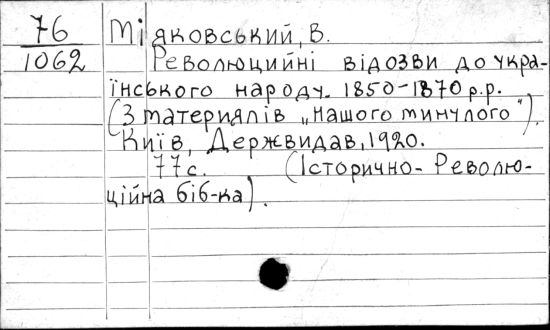 76 Міяковський, В.
1062 Революційні відозви до укра-
їнського народу. 1850-1870 р.р.
(З материялів „Нашого минулого").
Київ, Держвидав, 1920.
77 с. (Історично-Револю-
ційна біб-ка).